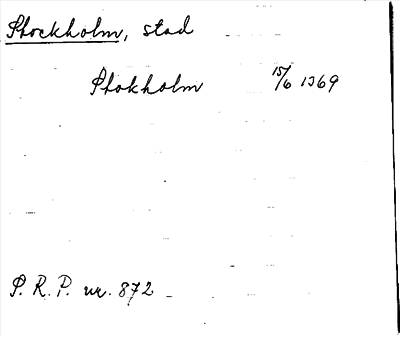 Stockholm, stad
Stokholm 15/6 1369
S. R. P. nr. 872